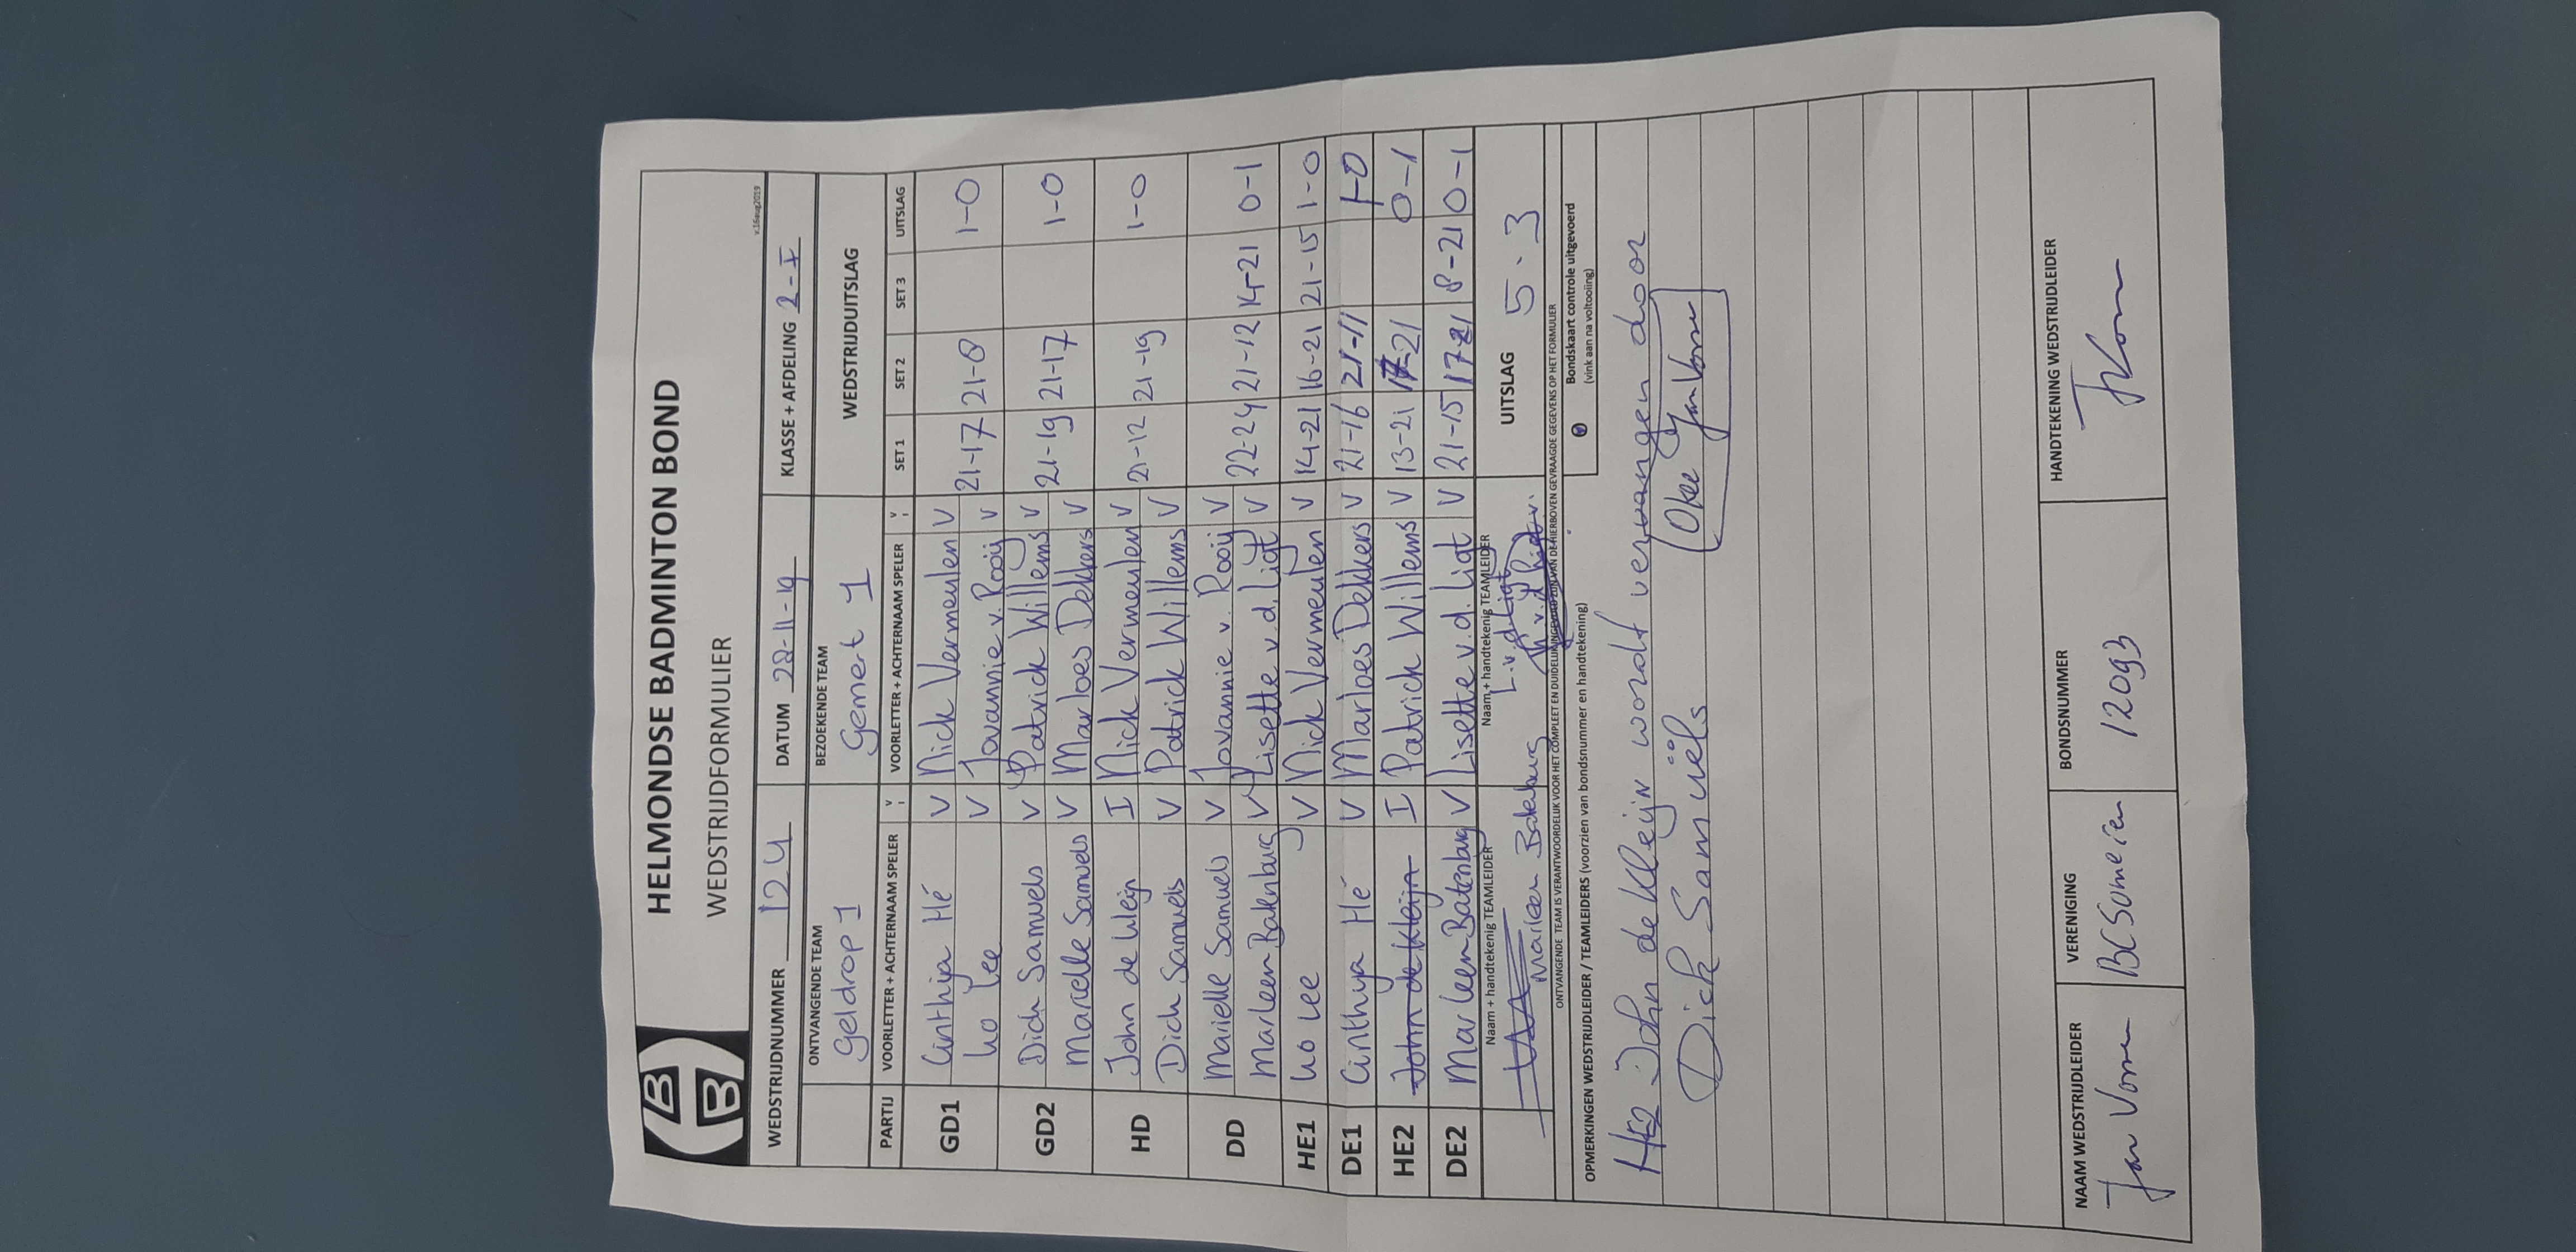 HELMONDSE BADMINTON BOND
WEDSTRIJDFORMULIER
v.16aug2019
WEDSTRIJDNUMMER 124 DATUM 28-11-19 KLASSE + AFDELING 2-I
ONTVANGENDE TEAM BEZOEKENDE TEAM WEDSTRIJDUITSLAG
Geldrop 1 Gemert 1
PARTIJ VOORLETTER + ACHTERNAAM SPELER V I VOORLETTER + ACHTERNAAM SPELER V I SET 1 SET 2 SET 3 UITSLAG
GD1 Cinthya Hé V Nick Vermeulen V 21-17 21-8 1-0
Ho Lee V Jovannie v. Rooij V
GD2 Dick Samuels V Patrick Willems V 21-19 21-17 1-0
Marielle Samuels V Marloes Dekkers V
HD John de Kleijn I Nick Vermeulen V 21-12 21-19 1-0
Dick Samuels V Patrick Willems V
DD Marielle Samuels V Jovannie v. Rooij V 22-24 21-12 15-21 0-1
Marleen Batenburg V Lisette v.d. Ligt V
HE1 Ho Lee V Nick Vermeulen V 14-21 16-21 21-15 1-0
DE1 Cinthya Hé V Marloes Dekkers V 21-16 21-11 1-0
HE2 John de Kleijn I Patrick Willems V 13-21 17-21 0-1
DE2 Marleen Batenburg V Lisette v.d. Ligt V 21-15 17-21 8-21 0-1
Naam + handtekenig TEAMLEIDER Naam + handtekenig TEAMLEIDER UITSLAG 5-3
Marleen Batenburg L.v.d Ligt
ONTVANGENDE TEAM IS VERANTWOORDELIJK VOOR HET COMPLEET EN DUIDELIJK INGEVULD ZIJN VAN DE HIERBOVEN GEVRAAGDE GEGEVENS OP HET FORMULIER
OPMERKINGEN WEDSTRIJDLEIDER / TEAMLEIDERS (voorzien van bondsnummer en handtekening)
Bondskaart controle uitgevoerd
(vink aan na voltooiing)
HE2 John de Kleijn wordt vervangen door
Dick Samuëls
Oke Jan Vorre
NAAM WEDSTRIJDLEIDER VERENIGING BONDSNUMMER HANDTEKENING WEDSTRIJDLEIDER
Jan BC Someren 12093